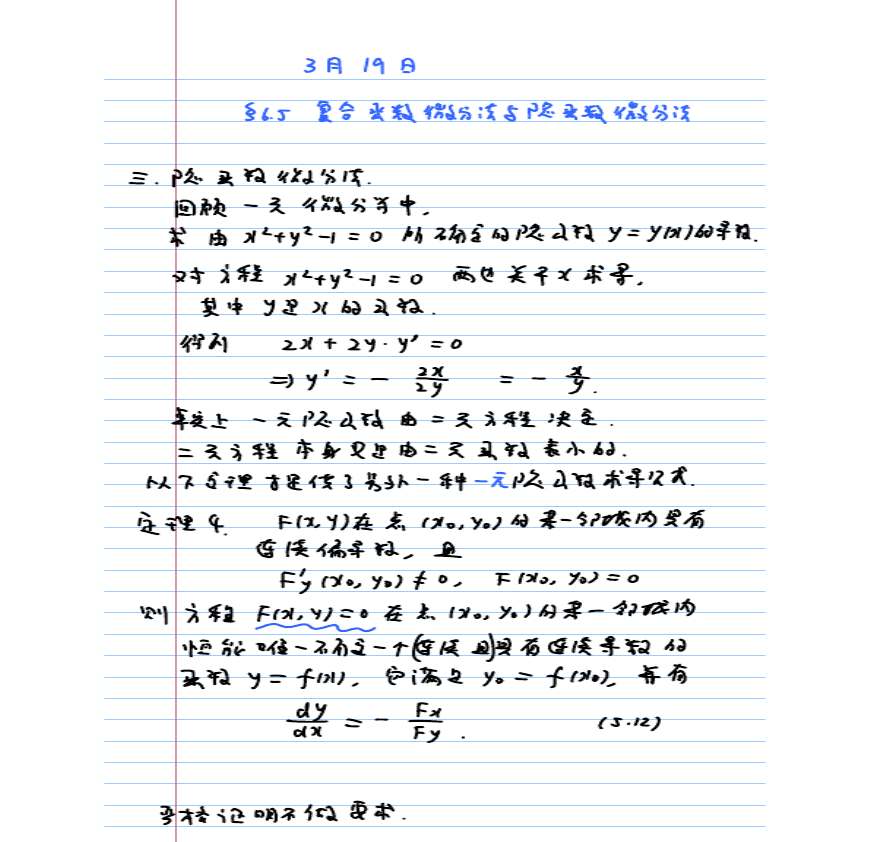 3月19日
§6.5 复合函数微分法与隐函数微分法
三.隐函数微分法.
回顾一元微分学中,
求由 x²+y²-1=0 所确定的隐函数 y=y(x)的导数.
对方程 x²+y²-1=0 两边关于x求导,
其中y是x的函数.
得到 2x+2y·y′=0
⇒ y′ = - 2x/2y = - x/y.
事实上一元隐函数由二元方程决定.
二元方程本身又是由二元函数表示的.
以下定理 提供了另外一种一元隐函数求导公式.
定理4. F(x,y)在点(x₀,y₀)的某一邻域内具有
连续偏导数,且
F′y(x₀,y₀)≠0, F(x₀,y₀)=0
则方程 F(x,y)=0 在点(x₀,y₀)的某一邻域内
恒能唯一确定一个(连续且)具有连续导数的
函数 y=f(x), 它满足 y₀=f(x₀), 并有
dy/dx = - Fx/Fy. (5.12)
严格证明不做要求.